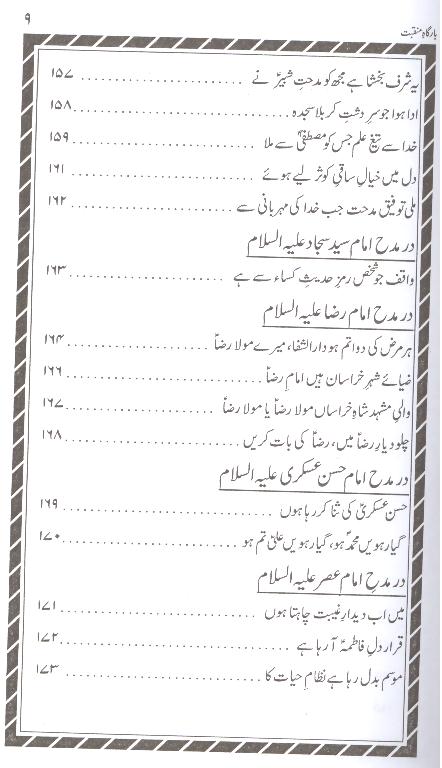 بارگاہِ منقبت
۹
یہ شرف بخشا ہے مجھ کو مدحتِ شبیرؑ نے ۱۵۷
ادا ہوا جو سرِ دشتِ کربلا سجدہ ۱۵۸
خدا سے تیغ علم جس کو مصطفیٰؐ سے ملا ۱۵۹
دل میں خیالِ ساقیِ کوثر لیے ہوئے ۱۶۱
ملی توفیقِ مدحت جب خدا کی مہربانی سے ۱۶۲
در مدح امام سید سجاد علیہ السلام
واقف جو شخص رمزِ حدیثِ کساء سے ہے ۱۶۳
در مدح امام رضا علیہ السلام
ہر مرض کی دوا تم ہو دار الشفاء، میرے مولا رضاؑ ۱۶۴
ضیائے شہرِ خراسان ہیں امام رضاؑ ۱۶۶
والیِ مشہد شاہِ خراساں مولا رضاؑ یا مولا رضاؑ ۱۶۷
چلو دیارِ رضاؑ میں، رضاؑ کی بات کریں ۱۶۸
در مدح امام حسن عسکری علیہ السلام
حسن عسکریؑ کی ثنا کر رہا ہوں ۱۶۹
گیارہویں محمدؐ ہو، گیارہویں علیؑ تم ہو ۱۷۰
در مدحِ امام عصر علیہ السلام
میں اب دیدارِ غیبت چاہتا ہوں ۱۷۱
قرارِ دلِ فاطمہؑ آ رہا ہے ۱۷۲
موسم بدل رہا ہے نظامِ حیات کا ۱۷۳